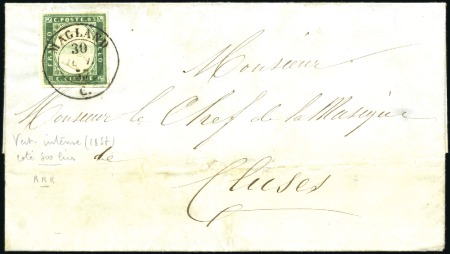 C. POSTE
FRANCO
MAGLAND
30
C.
Monsieur
Monsieur le Chef de la Musique
de
Cluses
Vert intense (1857)
coté 500 frs
RRR